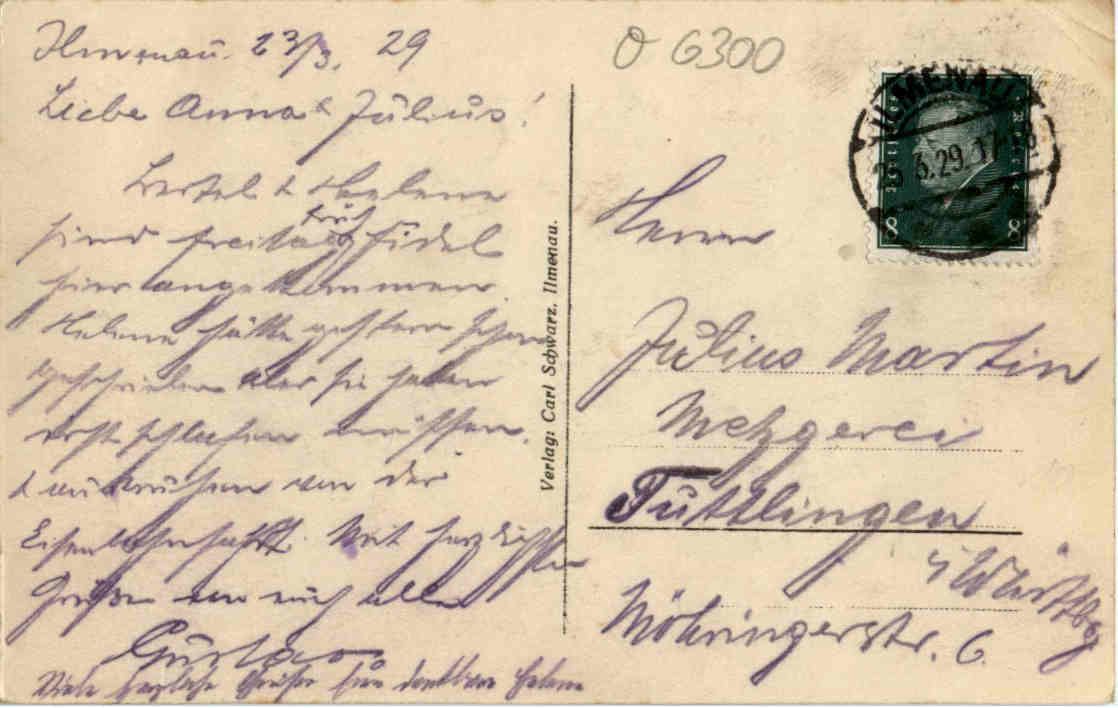 Ilmenau. 23/3. 29
Liebe Anna & Julius!
Bertel & Helene
sind freitag früh fidel
hier angekommen.
Helene hätte gestern schon
geschrieben aber sie haben
erst schlafen müssen,
& ausruhen von der
Eisenbahnfahrt. Mit herzlichsten
Grüßen an euch alle
Gustav
Viele herzliche Grüße Helene
Verlag: Carl Schwarz, Ilmenau.
O 6300
ILMENAU
3.29.17-18
8 8
Herrn
Julius Martin
Metzgerei
Tuttlingen
Württbg
Möhringerstr. 6.